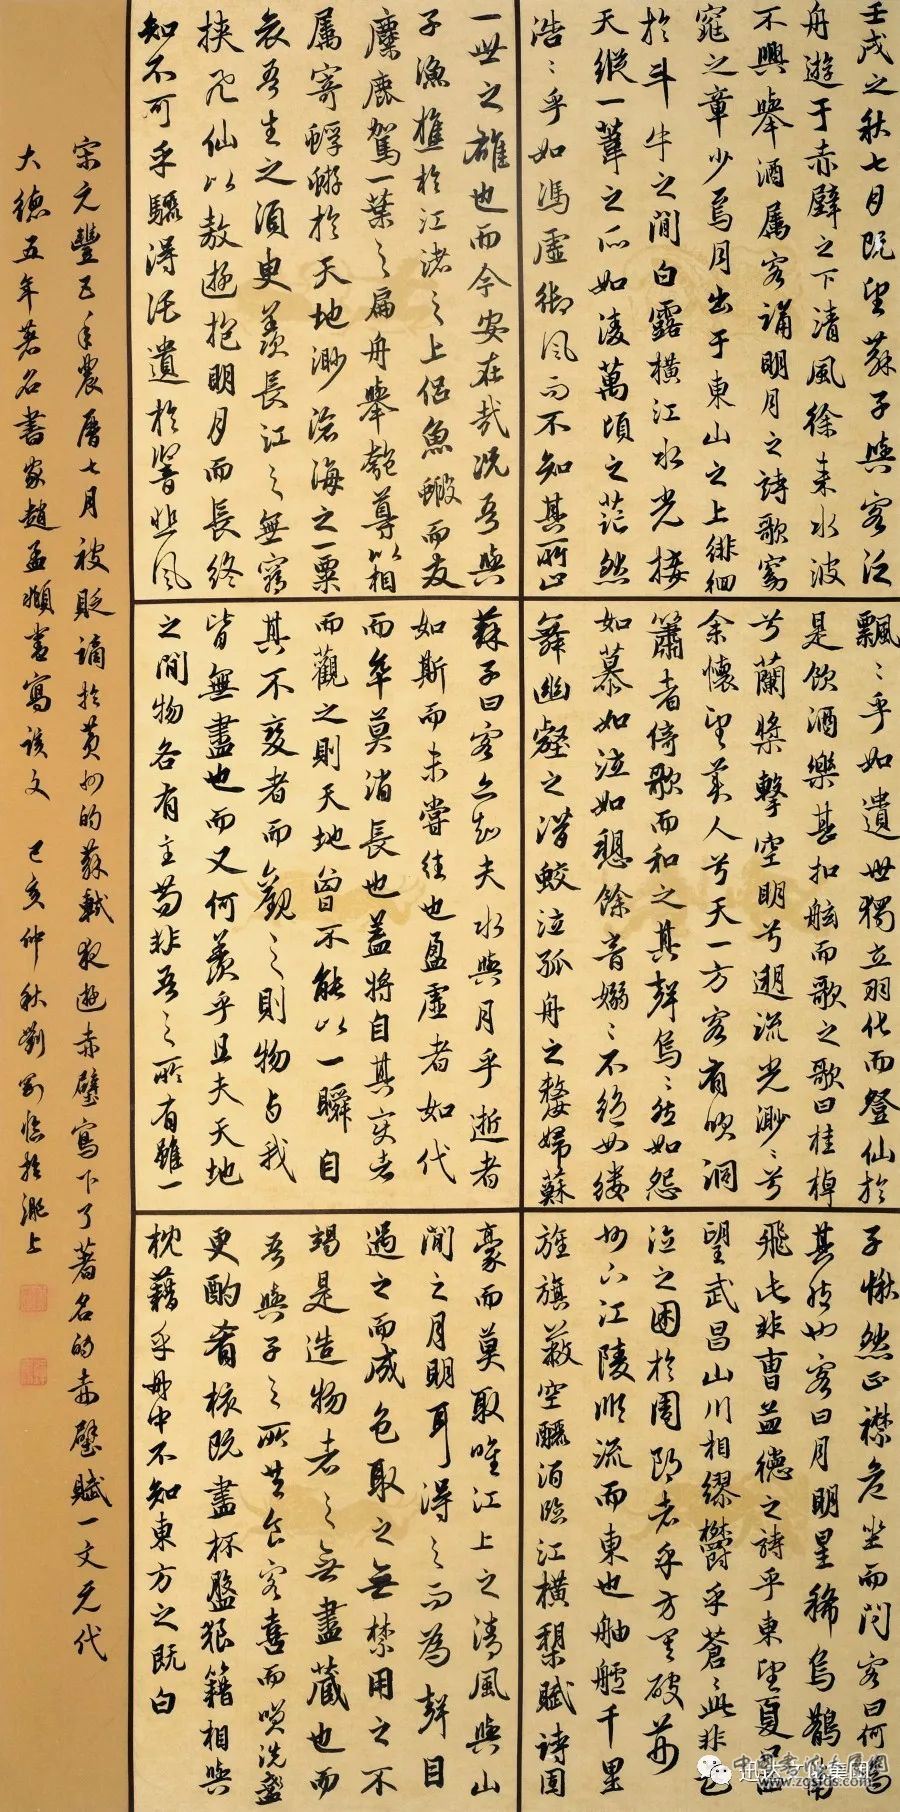 壬戌之秋七月既望蘇子與客泛
舟遊于赤壁之下清風徐來水波
不興舉酒属客誦明月之詩歌窈
窕之章少焉月出于東山之上徘徊
於斗牛之間白露橫江水光接
天縱一葦之所如凌萬頃之茫然
浩〻乎如馮虛御風而不知其所止
飄〻乎如遺世獨立羽化而登仙於
是飲酒樂甚扣舷而歌之歌曰桂棹
兮蘭槳擊空明兮遡流光渺〻兮
余懷望美人兮天一方客有吹洞
簫者倚歌而和之其聲烏〻然如怨
如慕如泣如愬餘音嫋〻不絕如縷
舞幽壑之潛蛟泣孤舟之嫠婦蘇
子愀然正襟危坐而問客曰何為
其然也客曰月明星稀烏鵲南
飛此非曹孟德之詩乎東望夏口西
望武昌山川相繆欝乎蒼〻此非孟
德之困於周郎者乎方其破荊
州下江陵順流而東也舳艫千里
旌旗蔽空釃酒臨江橫槊賦詩固
一世之雄也而今安在哉況吾與
子漁樵於江渚之上侶魚蝦而友
麋鹿駕一葉之扁舟舉匏尊以相
属寄蜉蝣於天地渺滄海之一粟
哀吾生之須臾羨長江之無窮
挾飛仙以敖遊抱明月而長終
知不可乎驟得託遺於響悲風
蘇子曰客亦知夫水與月乎逝者
如斯而未嘗往也盈虛者如代
而卒莫消長也蓋將自其變者
而觀之則天地曾不能以一瞬自
其不變者而觀之則物与我
皆無盡也而又何羨乎且夫天地
之間物各有主苟非吾之所有雖一
豪而莫取唯江上之清風與山
間之月明耳得之而為聲目
遇之而成色取之無禁用之不
竭是造物者之無盡藏也而
吾與子之所共食客喜而咲洗盞
更酌肴核既盡杯盤狼籍相與
枕藉乎舟中不知東方之既白
宋元豐五年農曆七月被貶謫於黄州的蘇軾夜遊赤壁寫下了著名的赤壁賦一文元代
大德五年著名書家趙孟頫書寫該文 己亥仲秋劉
www.zgsfds.com